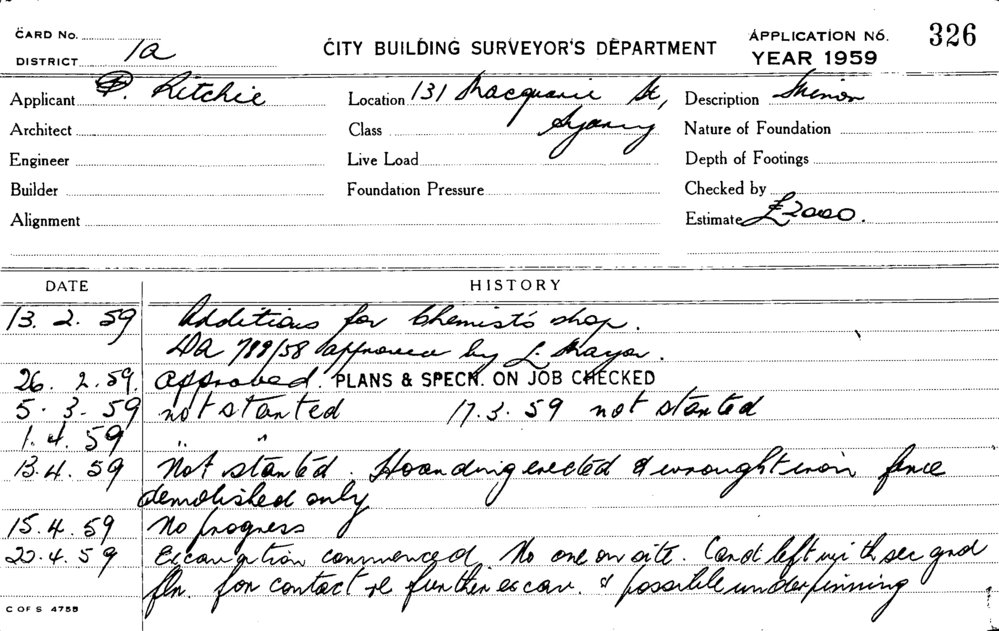 CARD No.
DISTRICT 1a
CITY BUILDING SURVEYOR'S DEPARTMENT
APPLICATION No. 326
YEAR 1959
Applicant P. Ritchie
Location 131 Macquarie St,
Description Minor
Architect
Class Sydney
Nature of Foundation
Engineer
Live Load
Depth of Footings
Builder
Foundation Pressure
Checked by
Alignment
Estimate £2000.
DATE HISTORY
13. 2. 59 Additions for Chemist's shop.
DA 789/58 approved by L. Mayor.
26. 2. 59. Approved. PLANS & SPECN. ON JOB CHECKED
5. 3. 59 not started 17. 3. 59 not started
1. 4. 59 " "
13. 4. 59 Not started. Hoarding erected & wrought iron fence
demolished only
15. 4. 59 No progress
20. 4. 59 Excavation commenced. No one on site. Card left with sec gnd
flr. for contact re further excav. & possible underpinning
C OF S 475B